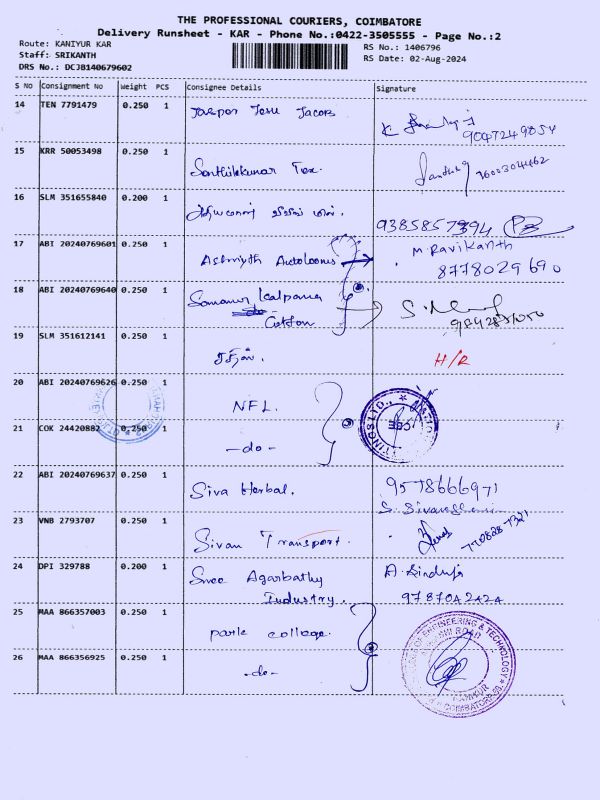 THE PROFESSIONAL COURIERS, COIMBATORE
Delivery Runsheet - KAR - Phone No.:0422-3505555 - Page No.:2
Route: KANIYUR KAR
Staff: SRIKANTH
DRS No.: DCJB140679602
RS No.: 1406796
RS Date: 02-Aug-2024
S NO Consignment No Weight PCS Consignee Details Signature
14 TEN 7791479 0.250 1 Jesu Jacob
15 KRR 50053498 0.250 1 Senthilkumar Tex.
16 SLM 351655840 0.200 1
9385857394
17 ABI 20240769601 0.250 1 Autolooms M. Ravikanth
8778029690
18 ABI 20240769640 0.250 1 Kalpana
Cotton
19 SLM 351612141 0.250 1 H/R
20 ABI 20240769626 0.250 1 NFL.
21 COK 24420882 0.250 1 -do-
22 ABI 20240769637 0.250 1 Siva Herbal. 9578666971
23 VNB 2793707 0.250 1 Sivan Transport.
24 DPI 329788 0.200 1 Sree Agarbathy A. Sinduja
Industry. 9787042424
25 MAA 866357003 0.250 1 park college.
26 MAA 866356925 0.250 1 -do-
OF ENGINEERING & TECHNOLOGY